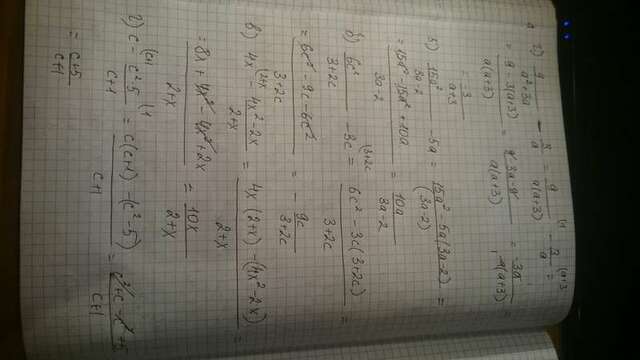 г) 9/(a²+3a) - 3/a = 9/(a(a+3)) - 3/a =
= (9-3(a+3))/(a(a+3)) = (9-3a-9)/(a(a+3)) = -3a/(a(a+3)) =
= 3/(a+3)
15a²/(3a-2) - 5a = (15a²-5a(3a-2))/(3a-2) =
= (15a²-15a²+10a)/(3a-2) = 10a/(3a-2)
б) 6c²/(3+2c) - 3c = (6c²-3c(3+2c))/(3+2c) =
= (6c²-9c-6c²)/(3+2c) = - 9c/(3+2c)
в) 4x - (4x²-2x)/(2+x) = (4x(2+x)-(4x²-2x))/(2+x) =
= (8x+4x²-4x²+2x)/(2+x) = 10x/(2+x)
г) c - (c²-5)/(c+1) = (c(c+1)-(c²-5))/(c+1) = (c²+c-c²+5)/(c+1)
= (c+5)/(c+1)